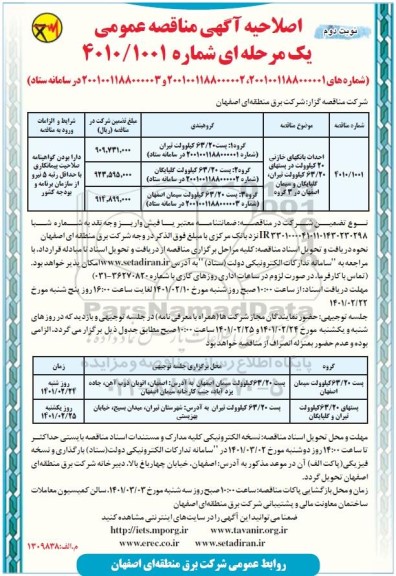 نوبت دوم
اصلاحیه آگهی مناقصه عمومی
یک مرحله ای شماره ۴۰۱۰/۱۰۰۱
(شماره های ۲۰۰۱۰۰۱۱۸۸۰۰۰۰۰۱، ۲۰۰۱۰۰۱۱۸۸۰۰۰۰۰۲ و ۲۰۰۱۰۰۱۱۸۸۰۰۰۰۰۳ در سامانه ستاد)
شرکت مناقصه گزار: شرکت برق منطقه‌ای اصفهان
شماره مناقصه
موضوع مناقصه
گروهبندی
مبلغ تضمین شرکت در مناقصه (ریال)
شرایط و الزامات ورود به مناقصه
۴۰۱۰/۱۰۰۱
احداث بانکهای خازنی ۲۰ کیلوولت در پستهای ۶۳/۲۰ کیلوولت تیران، گلپایگان و سیمان اصفهان در ۳ گروه
گروه۱: پست ۶۳/۲۰ کیلوولت تیران
(شماره ۲۰۰۱۰۰۱۱۸۸۰۰۰۰۰۱ در سامانه ستاد)
۹۰۹,۷۳۱,۰۰۰
گروه۲: پست ۶۳/۲۰ کیلوولت گلپایگان
(شماره ۲۰۰۱۰۰۱۱۸۸۰۰۰۰۰۲ در سامانه ستاد)
۹۲۳,۵۹۵,۰۰۰
گروه۳: پست ۶۳/۲۰ کیلوولت سیمان اصفهان
(شماره ۲۰۰۱۰۰۱۱۸۸۰۰۰۰۰۳ در سامانه ستاد)
۹۱۲,۸۹۹,۰۰۰
دارا بودن گواهینامه صلاحیت پیمانکاری با حداقل رتبه ۵ نیرو از سازمان برنامه و بودجه کشور
نوع تضمین شرکت در مناقصه: ضمانتنامه معتبر یا فیش واریز وجه نقد به شماره شبا
نزد بانک مرکزی با مبلغ فوق الذکر در وجه شرکت برق منطقه ای اصفهان
نحوه دریافت و تحویل اسناد مناقصه: کلیه مراحل برگزاری مناقصه از دریافت و تحویل اسناد تا مبادله قرارداد، با
مراجعه به "سامانه تدارکات الکترونیکی دولت (ستاد)" به آدرس www.setadiran.ir امکان پذیر خواهد بود.
(تماس با کارفرما، در صورت لزوم در ساعات اداری روزهای کاری با شماره: ۳۶۲۷۰۸۲۰-۰۳۱)
مهلت دریافت اسناد: از ساعت ۱۰:۰۰ صبح روز شنبه مورخ ۱۴۰۱/۰۲/۱۰ لغایت ساعت ۱۶:۰۰ روز پنج شنبه مورخ
۱۴۰۱/۰۲/۲۲
جلسه توجیهی: حضور نمایندگان مجاز شرکت ها (همراه با معرفی نامه) در جلسه توجیهی و بازدید که در روزهای
شنبه و یکشنبه مورخ ۱۴۰۱/۰۲/۲۴ و ۱۴۰۱/۰۲/۲۵ ساعت ۱۰:۰۰ صبح مطابق جدول ذیل برگزار می گردد، الزامی
بوده و عدم حضور بمنزله انصراف از مناقصه خواهد بود
گروه
محل برگزاری جلسه توجیهی
زمان
پست ۶۳/۲۰ کیلوولت سیمان اصفهان
پست ۶۳/۲۰ کیلوولت سیمان اصفهان به آدرس: اصفهان، اتوبان ذوب آهن، جاده یزد آباد، جنب کارخانه سیمان اصفهان
روز شنبه ۱۴۰۱/۰۲/۲۴
پستهای ۶۳/۲۰ کیلوولت تیران و گلپایگان
پست ۶۳/۲۰ کیلوولت تیران به آدرس: شهرستان تیران، میدان بسیج، خیابان بهزیستی
روز یکشنبه ۱۴۰۱/۰۲/۲۵
مهلت و محل تحویل اسناد مناقصه: نسخه الکترونیکی کلیه مدارک و مستندات اسناد مناقصه بایستی حداکثر
تا ساعت ۱۴:۰۰ روز دوشنبه مورخ ۱۴۰۱/۰۳/۰۲ در "سامانه تدارکات الکترونیکی دولت (ستاد)" بارگذاری و نسخه
فیزیکی (پاکت الف) آن در موعد مذکور به آدرس: اصفهان، خیابان چهارباغ بالا، دبیرخانه شرکت برق منطقه‌ای
اصفهان تحویل گردد.
زمان و محل بازگشایی پاکات مناقصه: ساعت ۱۰:۰۰ صبح روز سه شنبه مورخ ۱۴۰۱/۰۳/۰۳، سالن کمیسیون معاملات
ساختمان معاونت مالی و پشتیبانی شرکت برق منطقه‌ای اصفهان
ضمنا می توانید این آگهی را در سایت‌های اینترنتی مشاهده کنید
http://iets.mporg.ir www.tavanir.org.ir
www.erec.co.ir www.setadiran.ir
م.الف: ۱۳۰۹۸۳۸
روابط عمومی شرکت برق منطقه‌ای اصفهان